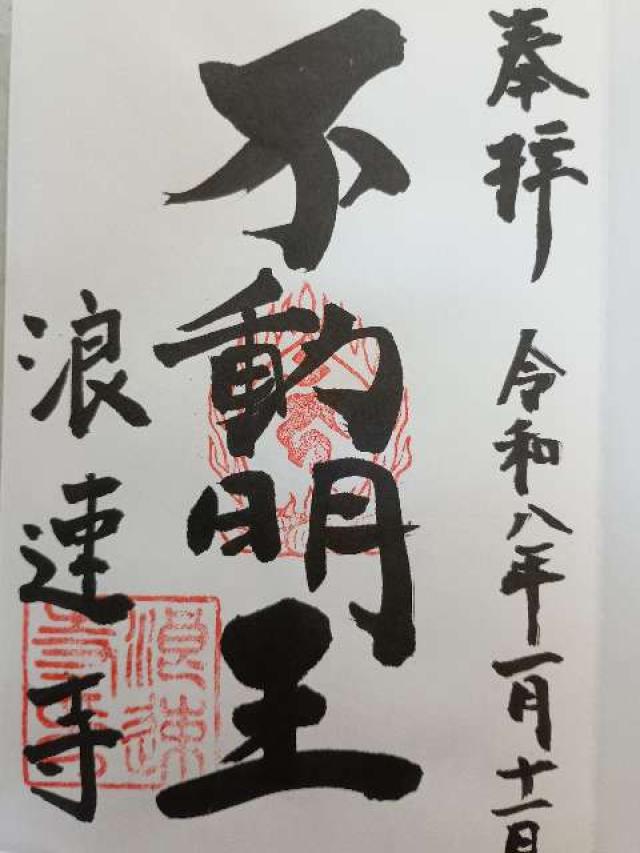 奉拝
令和八年一月十一日
不動明王
浪速寺